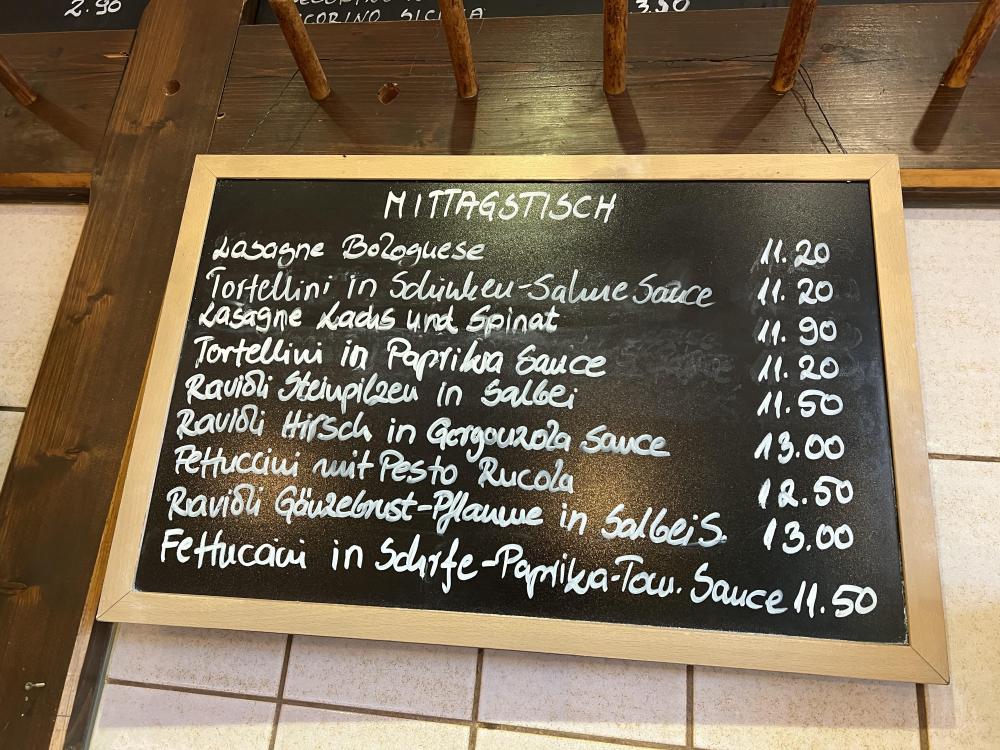 2.90
PECORINO SICILIA
3.30
MITTAGSTISCH
Lasagne Bolognese 11.20
Tortellini in Schinken-Sahne Sauce 11.20
Lasagne Lachs und Spinat 11.90
Tortellini in Paprika Sauce 11.20
Ravioli Steinpilzen in Salbei 11.50
Ravioli Hirsch in Gorgonzola Sauce 13.00
Fettuccini mit Pesto Rucola 12.50
Ravioli Gänzebrust-Pflaume in Salbei S. 13.00
Fettuccini in Schrfe-Paprika-Tom. Sauce 11.50